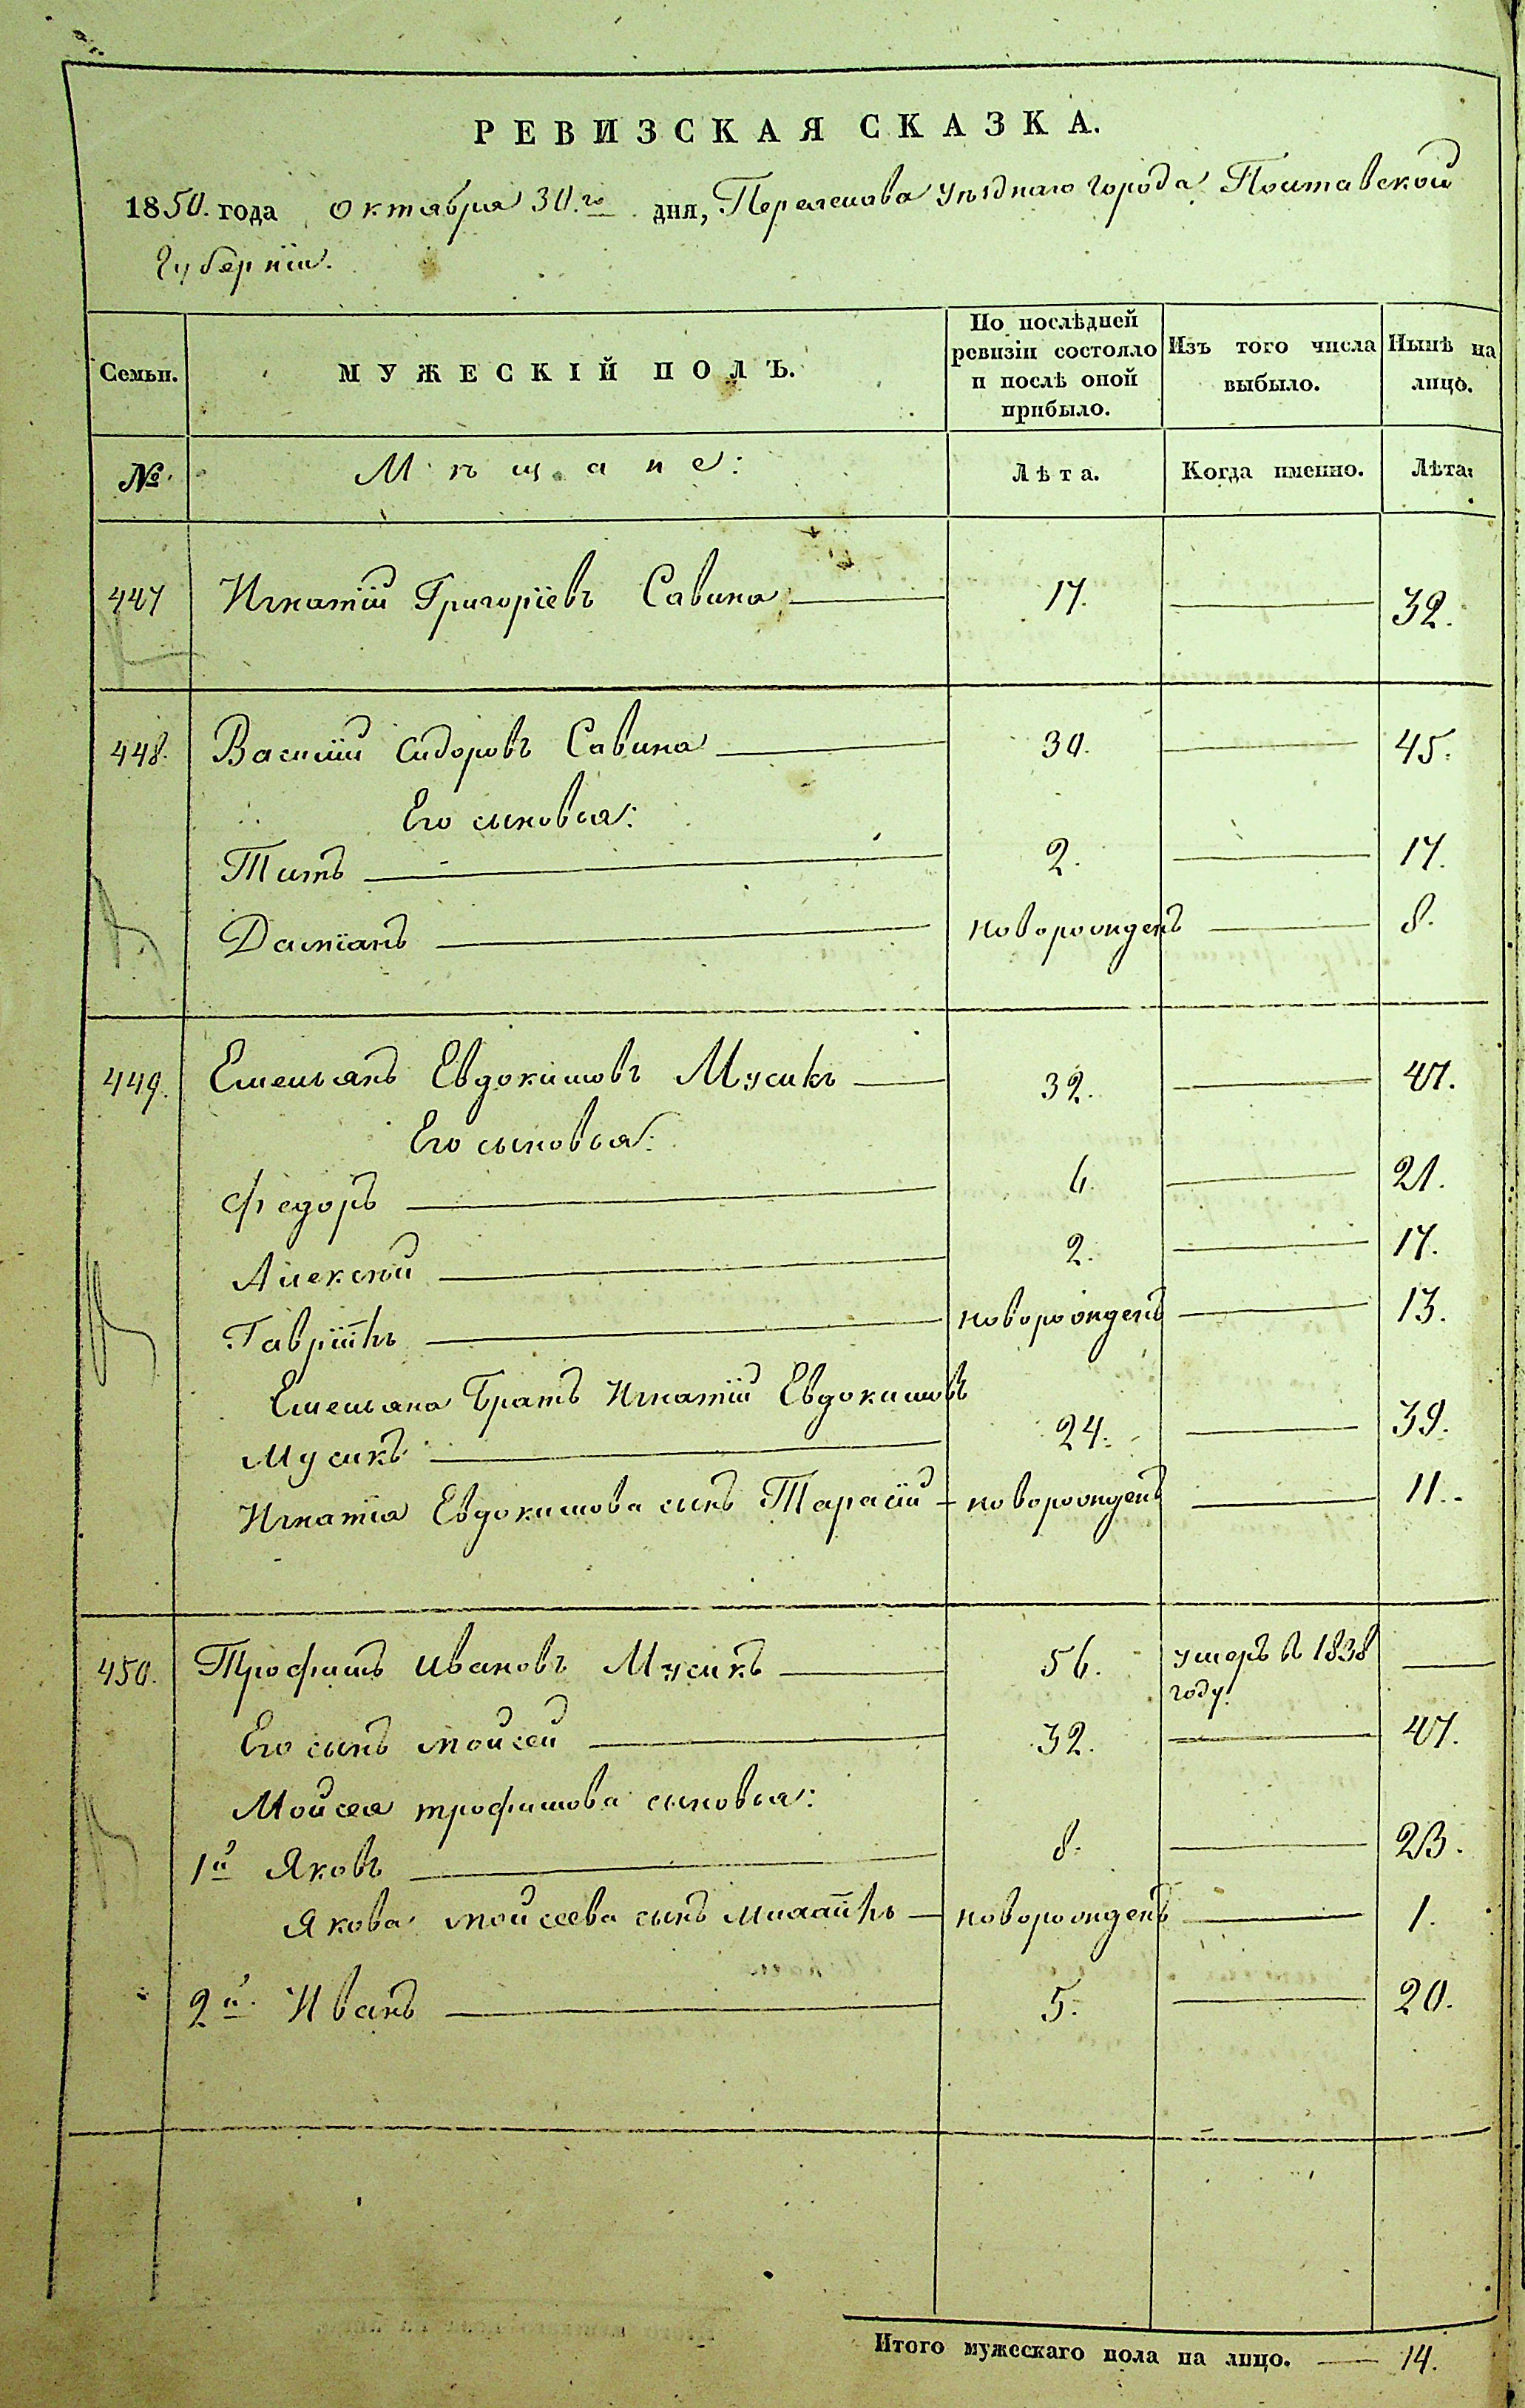 РЕВИЗСКАЯ СКАЗКА.
1850. года Октября 30.го дня, Переяслова уѣзднаго города Полтавской
Губерніи.
Семьи.
МУЖЕСКІЙ ПОЛЪ.
По послѣдней ревизіи состояло и послѣ оной прибыло.
Изъ того числа выбыло.
Нынѣ на лицо.
№. Мѣщане: Лѣта. Когда именно. Лѣта.
447 Игнатій Григоріевъ Савина — 17. — 32.
448. Василій Сидоровъ Савина — 30. — 45.
Его сыновья:
Титъ — 2. — 17.
Даміанъ — новорожденъ — 8.
449. Емельянъ Евдокимовъ Мусикъ — 32. — 47.
Его сыновья:
Федоръ — 6. — 21.
Алексѣй — 2. — 17.
Гавріилъ — новорожденъ — 13.
Емельяна братъ Игнатій Евдокимовъ
Мусикъ — 24. — 39.
Игнатія Евдокимова сынъ Тарасій — новорожденъ — 11.
450. Трофимъ Ивановъ Мусикъ — 56. умеръ въ 1838 —
году.
Его сынъ Мойсей — 32. — 47.
Мойсея трофимова сыновья:
1й Яковъ — 8. — 23.
Якова мойсеева сынъ Михаилъ — новорожденъ — 1.
2й. Иванъ — 5. — 20.
Итого мужескаго пола на лицо. — 14.